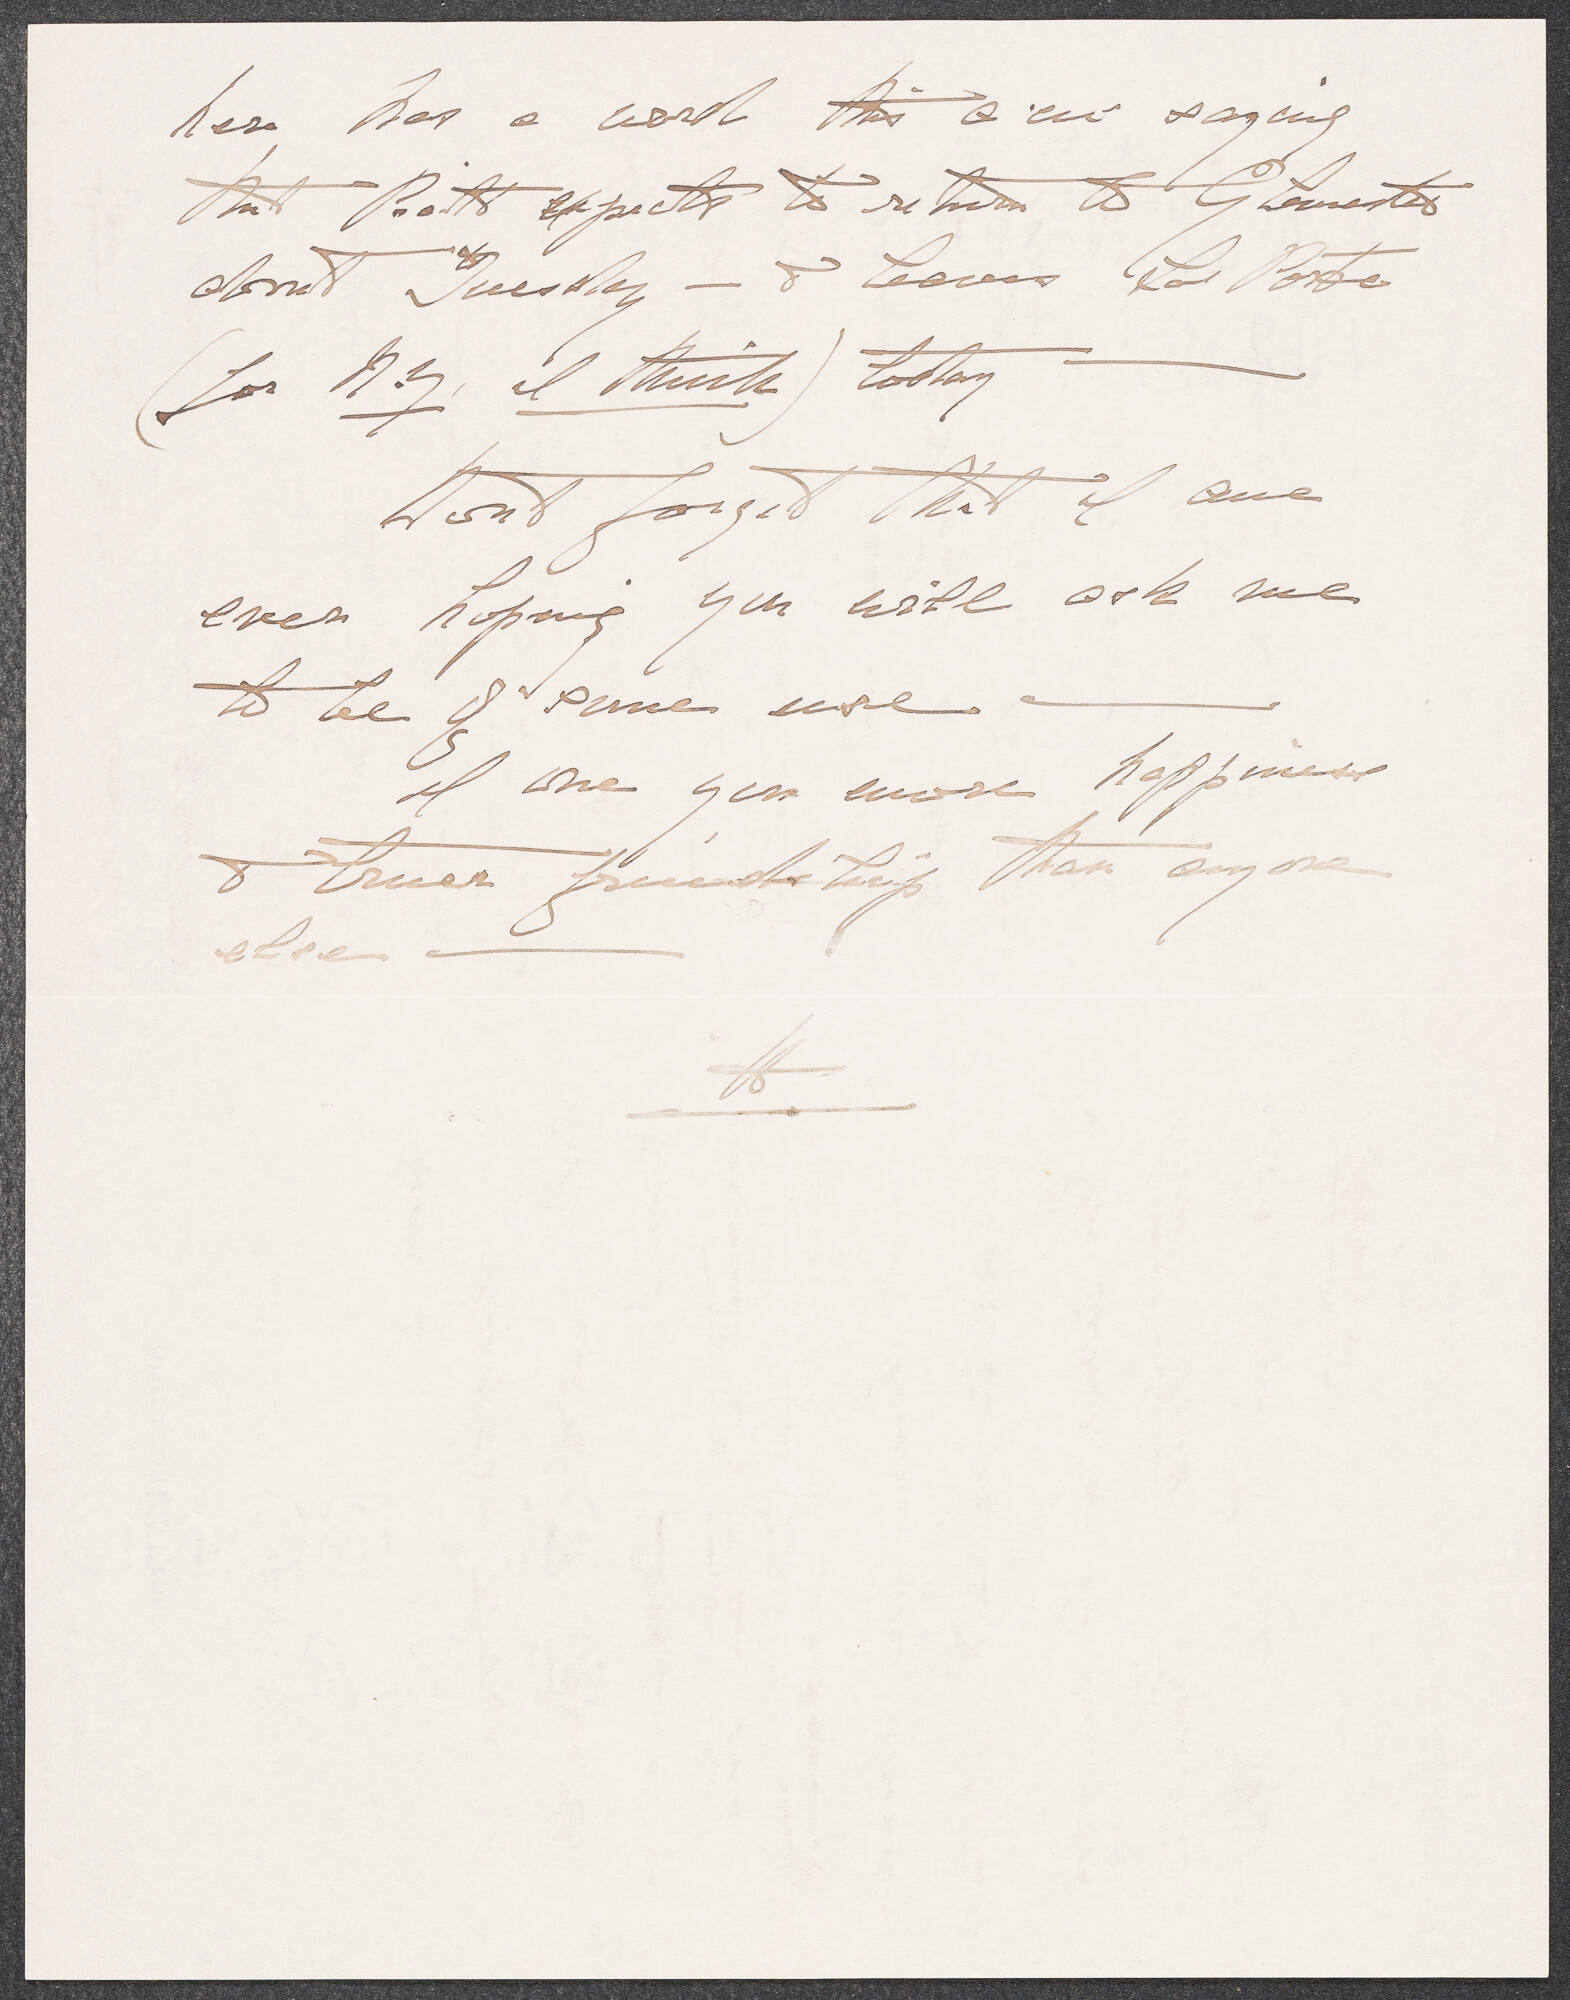 here has a word this a.m. saying
that Piatt expects to return to Gloucester
about Tuesday — & leaves La Porte
(for N.Y. I think) today —
Don't forget that I am
ever hoping you will ask me
to be of some use —
I owe you more happiness
& truer friendship than anyone
else —